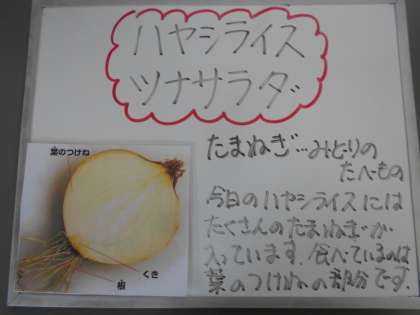 ハヤシライス
ツナサラダ
たまねぎ…みどりの
たべもの
今日のハヤシライスには
たくさんのたまねぎが
入っています。食べているのは
葉のつけねの部分です。
葉のつけね
くき
根